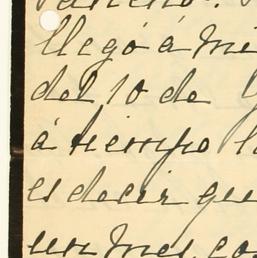 llegó á mi
del 10 de
á tiempo
es decir que
un mes, co